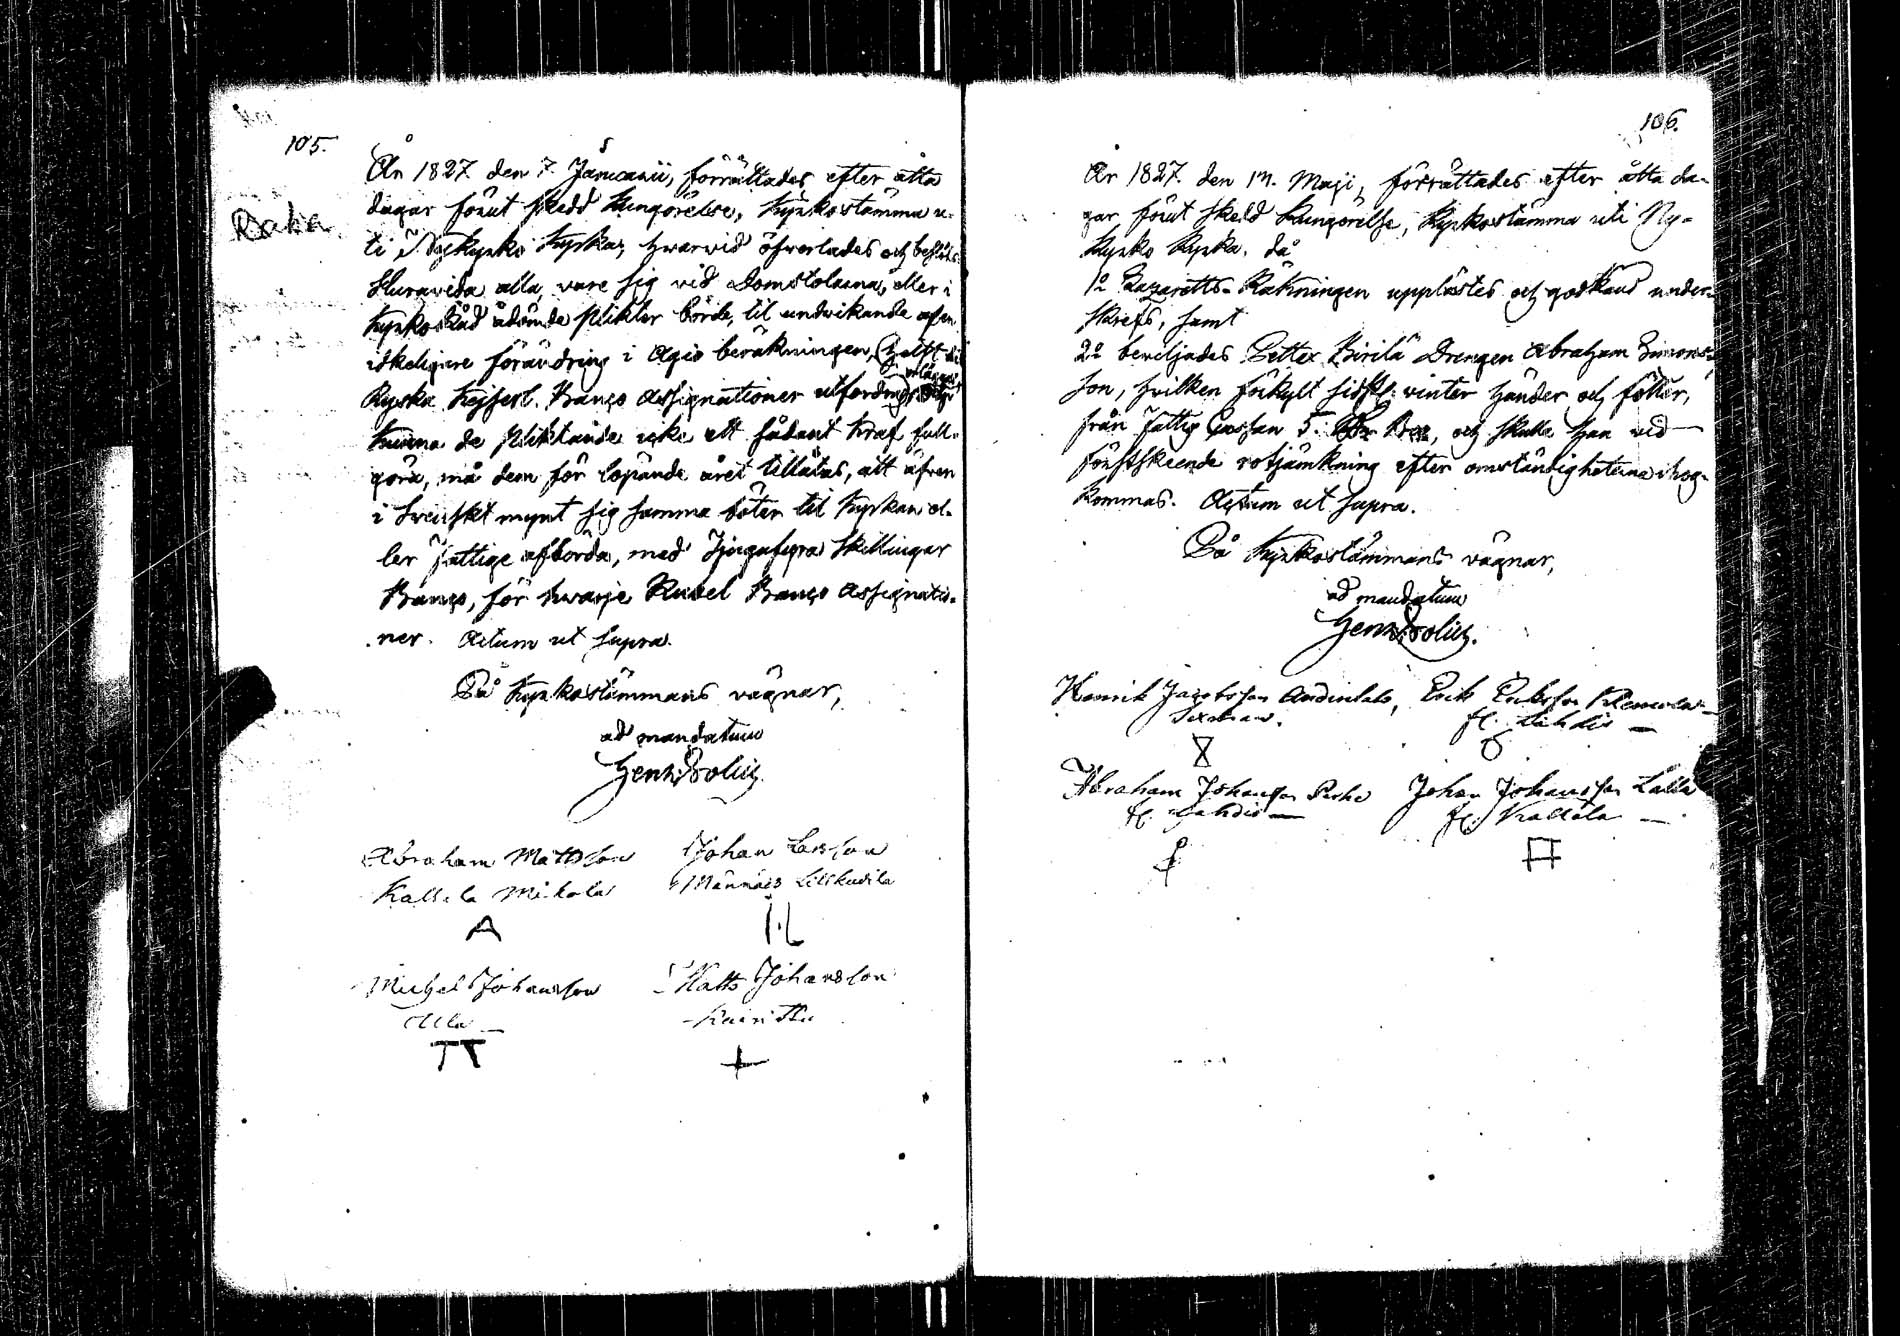 105.
År 1827 den 7. Januarii, förrättades efter åtta
dagar förut skedd kungörelse, Kyrkostämma u-
ti Nykyrko Kyrka, hwarvid öfverlades och beslöts
Huruvida alla, vare sig vid Domstolarna, eller i
Kyrkoråd ådömde plikter borde, til undvikande af en
förändring i Agio beräkningen,
Ryska Kejserl. Banco Assignationer
kunna de pliktande icke ett sådant kraf full-
göra, må dem för löpande året tillåtas, att äfven
i Svenskt mynt sig samma böter til Kyrkan el-
ler fattige afbörda, med Tjugufyra Skillingar
Banco, för hwarje Rubel Banco Assignatio-
ner. Actum ut supra.
På Kyrkostämmans vägnar,
ad mandatum
Abraham Mattsson
Kallela Mikola
A
Johan Larsson
Männäis Lillkudila
Michel Johansson
Ala
Matts Johansson
106.
År 1827. den 14. Maji, förrättades efter åtta da-
gar förut skedd kungörelse, Kyrkostämma uti Ny-
kyrko Kyrka, då
1o Lazaretts-Räkningen upplästes och godkänd under-
skrefs, samt
2o beviljades Petter Birilä Drengen Abraham Simons-
son, hvilken förkylt sidstl. vinter händer och fötter,
från Fattig Cassan 5. och skulle han vid
förstskeende rotjämkning efter omständigheterna ihog-
kommas. Actum ut supra.
På Kyrkostämmans vägnar,
ad mandatum
Henrik Jacobsson
Erik Eriksson Klemola
fr. Lahdis
Abraham Johansson
fr. Lahdis
Johan Johansson Lalla
fr. Kallela